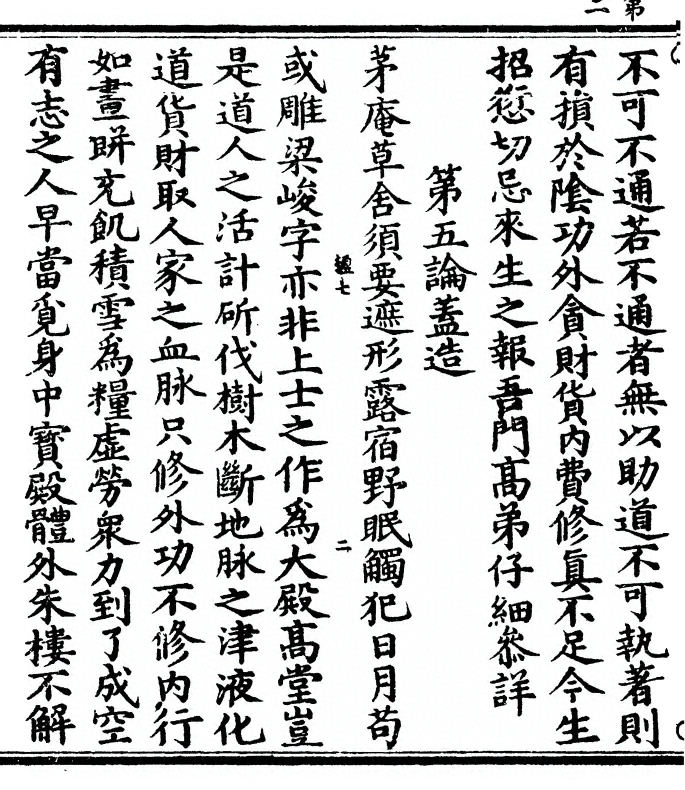 不可不通若不通者無以助道不可執著則
有損於陰功外貪財貨內費修真不足今生
招愆切忌來生之報吾門高弟仔細叅詳
第五論蓋造
茅庵草舍須要遮形露宿野眠觸犯日月苟
楹七 二
或雕梁峻字亦非上士之作爲大殿高堂豈
是道人之活計斫伐樹木斷地脉之津液化
道貨財取人家之血脉只修外功不修内行
如畫餅充飢積雪爲糧虛勞衆力到了成空
有志之人早當覓身中寶殿體外朱樓不解